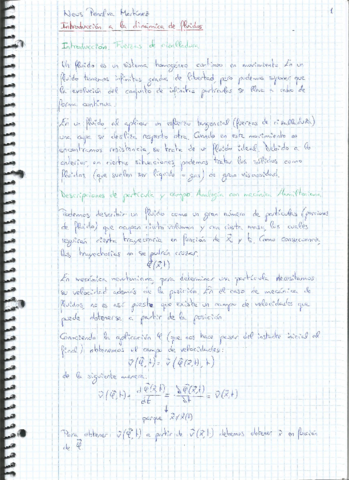 Neus Martínez
1
Introducción a la dinámica de fluidos
Introducción. Fuerzas de cizalladura
Un fluido es un sistema homogéneo continuo en movimiento. En un
fluido tenemos infinitos grados de libertad pero podemos suponer que
la evolución del conjunto de infinitas partículas se lleva a cabo de
forma continua.
En un fluido al aplicar un esfuerzo tangencial (fuerzas de cizalladura)
una capa se desliza respecto otra. Cuando en este movimiento no
encontramos resistencia se trata de un fluido ideal. Debido a lo
anterior en ciertas situaciones podemos tratar los sólidos como
fluidos (que suelen ser líquido o gas) de gran viscosidad.
Descripciones de partícula y campo. Analogía con mecánica
Podemos describir un fluido como un gran número de partículas (porciones
de fluido) que ocupan cierto volumen y con cierta masa, las cuales
seguirán cierta trayectoria en función de x y t. Como consecuencia,
las trayectorias no se podrán cruzar.
En mecánica newtoniana, para determinar una partícula necesitamos
su velocidad además de la posición. En el caso de mecánica de
fluidos no es así puesto que existe un campo de velocidades que
puede obtenerse a partir de la posición.
Conociendo la aplicación φ (que nos hace pasar del instante inicial al
final) obtenemos el campo de velocidades:
de la siguiente manera:
porque
Para obtener a partir de debemos obtener en función
de